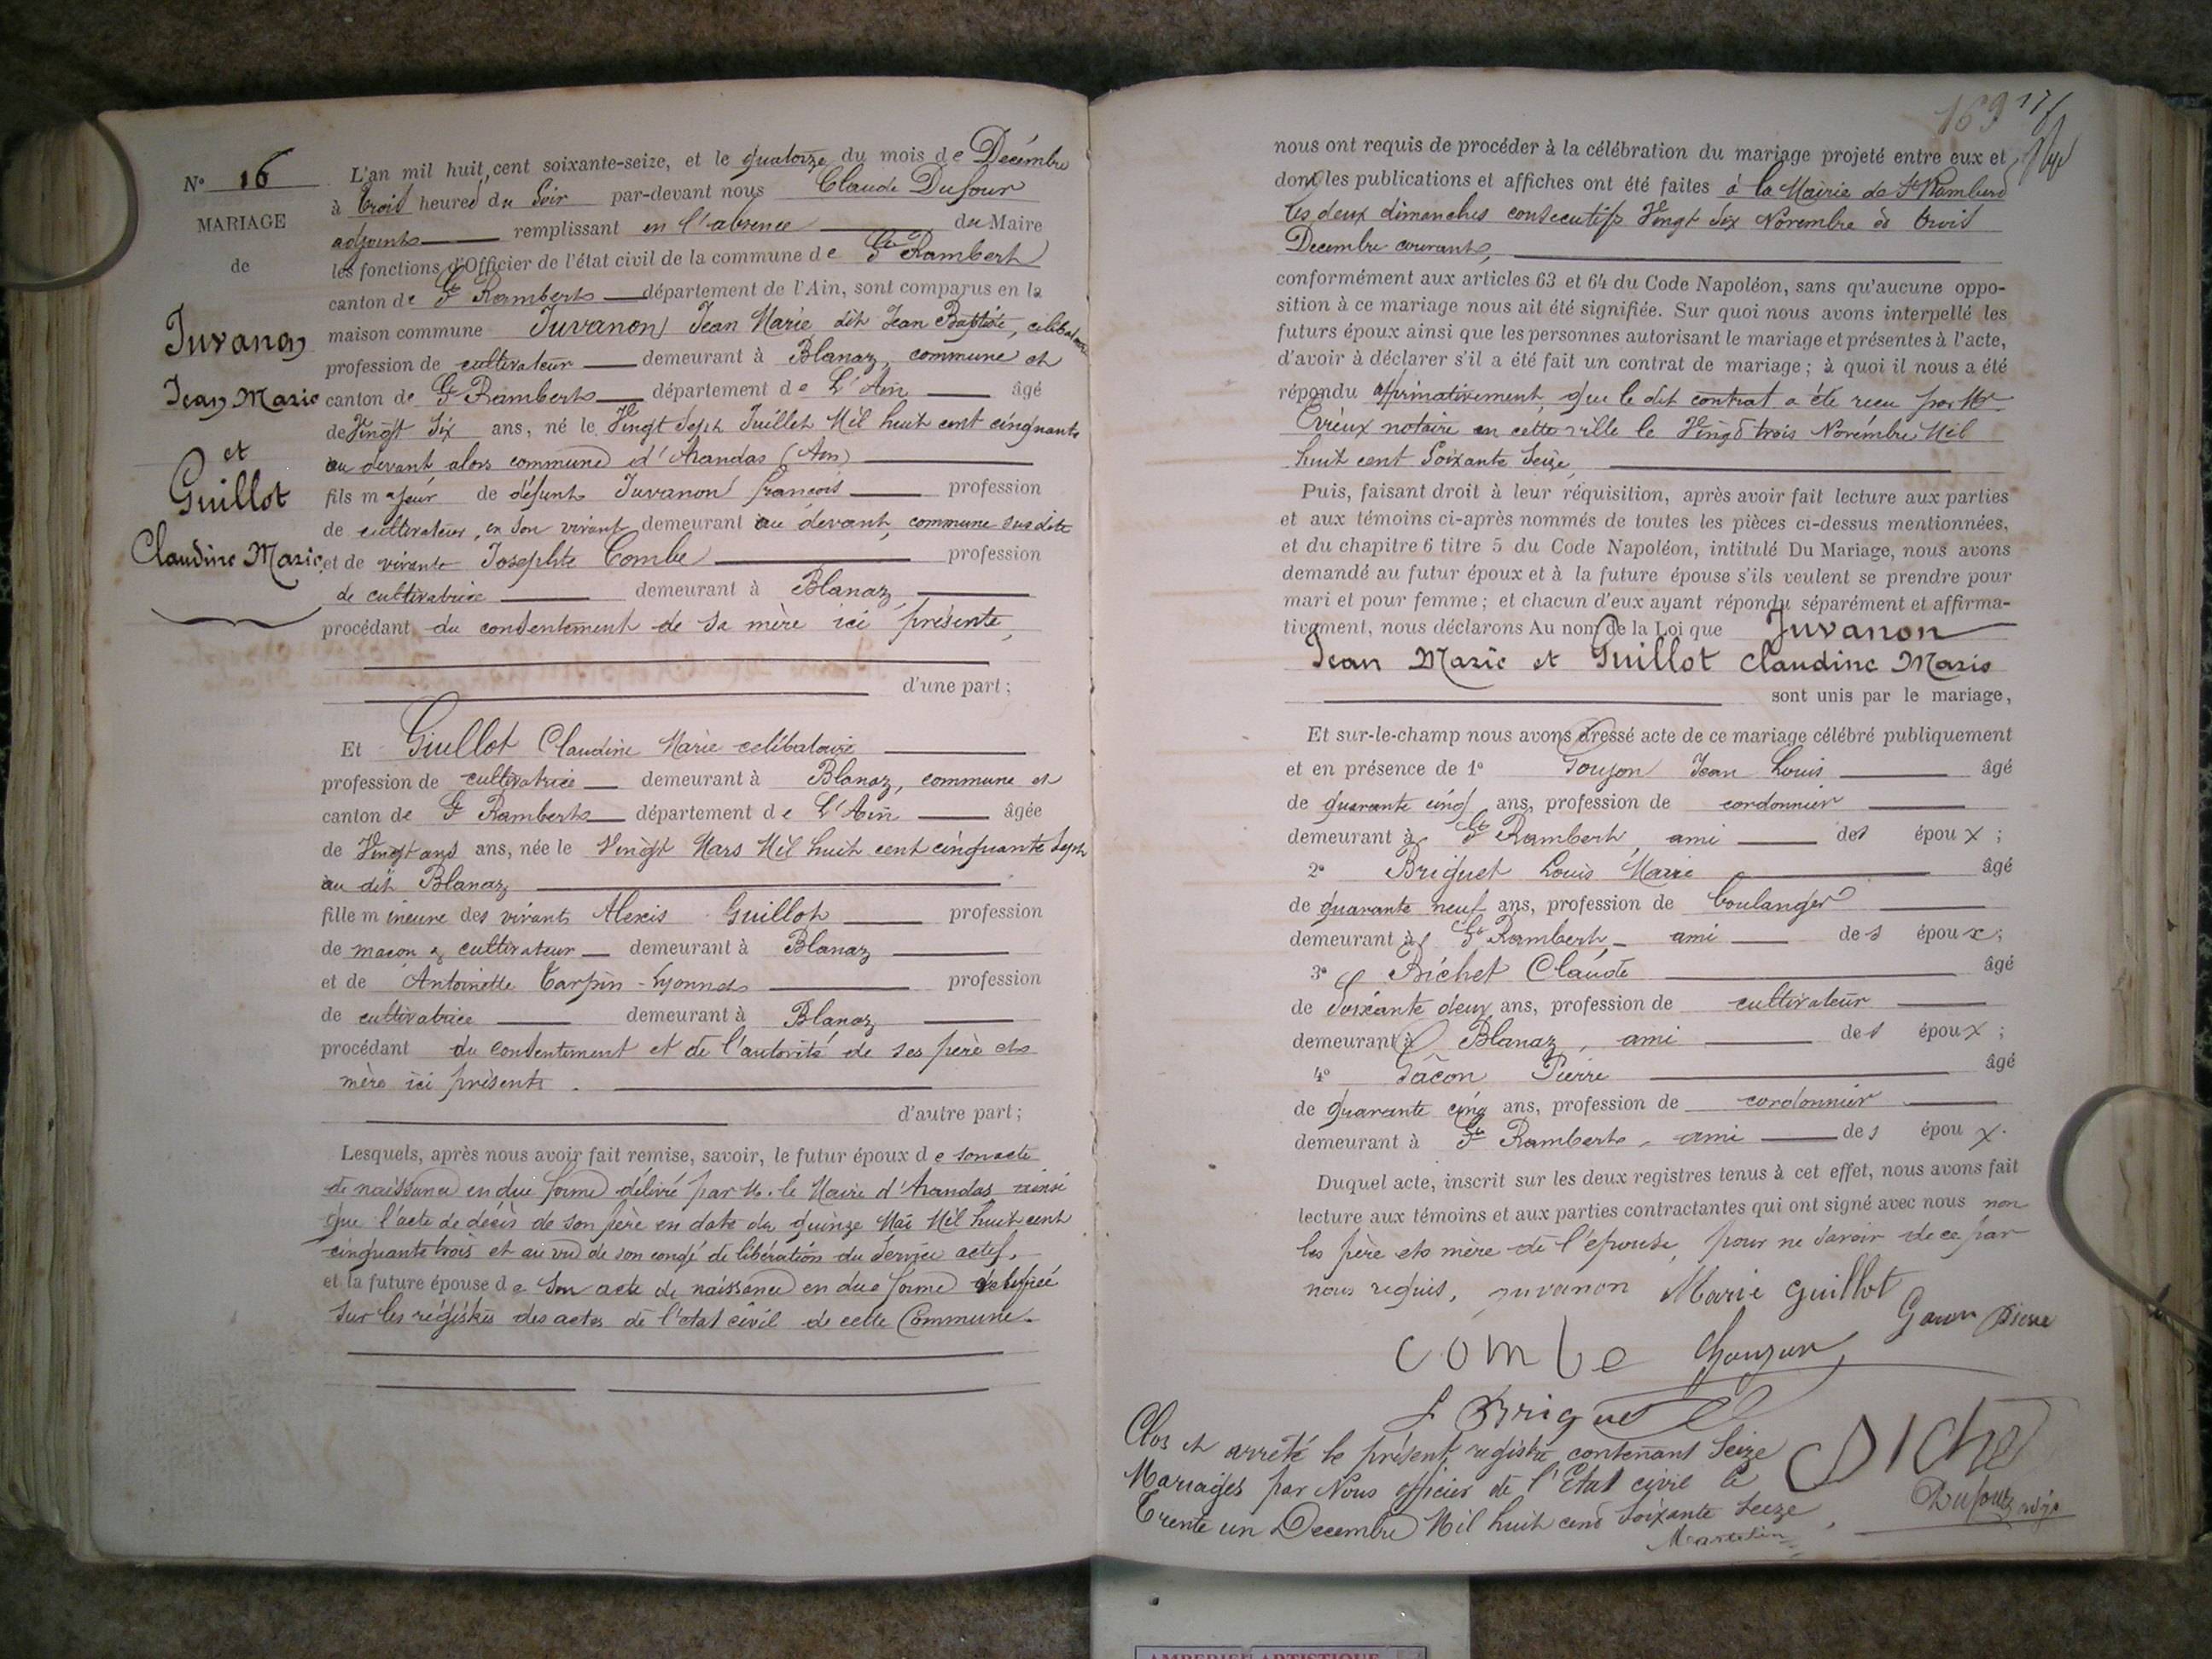 N° 16
MARIAGE
de
Juvanon
Jean Marie
et
Guillot
Claudine Marie
L'an mil huit cent soixante-seize, et le quatorze du mois de Décembre
à trois heures du soir par-devant nous Claude Dufour
adjoint remplissant en l'absence du Maire
les fonctions d'Officier de l'état civil de la commune de St Rambert
canton de St Rambert département de l'Ain, sont comparus en la
maison commune Juvanon Jean Marie dit Jean Baptiste, célibataire
profession de cultivateur demeurant à Blanaz, commune et
canton de St Rambert département de L'Ain âgé
de Vingt six ans, né le Vingt Sept Juillet Mil huit cent cinquante
au devant alors commune d'Arandas (Ain)
fils majeur de défunt Juvanon françois profession
de cultivateur, en son vivant demeurant au devant, commune susdite
et de vivante Josephte Combe profession
de cultivatrice demeurant à Blanaz,
procédant du consentement de sa mère ici présente,
d'une part;
Et Guillot Claudine Marie celibataire
profession de cultivatrice demeurant à Blanaz, commune et
canton de St Rambert département de L'Ain âgée
de Vingt ans ans, née le Vingt Mars Mil huit cent cinquante sept
au dit Blanaz
fille mineure des vivants Alexis Guillot profession
de macon & cultivateur demeurant à Blanaz
et de Antoinette Tarpin-Lyonnet profession
de cultivatrice demeurant à Blanaz
procédant du consentement et de l'autorité de ses père et
mère ici présents.
d'autre part;
Lesquels, après nous avoir fait remise, savoir, le futur époux de son acte
de naissance en due forme délivré par M. le Maire d'Arandas ainsi
que l'acte de décès de son père en date du quinze Mai Mil huit cent
cinquante trois et au vu de son congé de libération du service actif,
et la future épouse de son acte de naissance en due forme
sur les régistres des actes de l'etat civil de cette Commune.
169 171
nous ont requis de procéder à la célébration du mariage projeté entre eux et
dont les publications et affiches ont été faites à la Mairie de St Rambert
les deux dimanches consecutifs Vingt six Novembre et trois
Decembre courant,
conformément aux articles 63 et 64 du Code Napoléon, sans qu'aucune oppo-
sition à ce mariage nous ait été signifiée. Sur quoi nous avons interpellé les
futurs époux ainsi que les personnes autorisant le mariage et présentes à l'acte,
d'avoir à déclarer s'il a été fait un contrat de mariage; à quoi il nous a été
répondu affirmativement, que le dit contrat a été recu par Mr
notaire en cette ville le Vingt trois Novembre Mil
huit cent Soixante Seize,
Puis, faisant droit à leur réquisition, après avoir fait lecture aux parties
et aux témoins ci-après nommés de toutes les pièces ci-dessus mentionnées,
et du chapitre 6 titre 5 du Code Napoléon, intitulé Du Mariage, nous avons
demandé au futur époux et à la future épouse s'ils veulent se prendre pour
mari et pour femme; et chacun d'eux ayant répondu séparément et affirma-
tivement, nous déclarons Au nom de la Loi que Juvanon
Jean Marie et Guillot Claudine Marie
sont unis par le mariage,
Et sur-le-champ nous avons dressé acte de ce mariage célébré publiquement
et en présence de 1° Goujon Jean Louis âgé
de quarante cinq ans, profession de cordonnier
demeurant à St Rambert, ami des époux;
2° Briguet Louis Marie âgé
de quarante neuf ans, profession de boulanger
demeurant à St Rambert ami des époux;
3° Bichet Claude âgé
de Soixante deux ans, profession de cultivateur
demeurant à Blanaz, ami des époux;
4° Gâcon Pierre âgé
de quarante cinq ans, profession de cordonnier
demeurant à St Rambert, ami des époux.
Duquel acte, inscrit sur les deux registres tenus à cet effet, nous avons fait
lecture aux témoins et aux parties contractantes qui ont signé avec nous non
les père et mère de l'épouse, pour ne savoir de ce par
nous requis, Juvanon Marie Guillot
combe Gacon Pierre
L Briguet
Clos et arrêté le présent registre contenant Seize
Mariages par Nous officier de l'Etat civil le
Trente un Decembre Mil huit cent soixante Seize,
Dufour adjt
AMBERIEU ARTISTIQUE